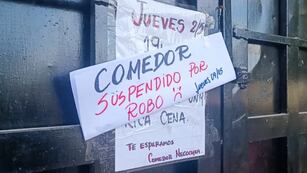 JUEVES 2/5
19
COMEDOR
SUSPENDIDO POR
ROBO
JUEVES 09/05
RICA CENA.
TE ESPERAMOS
COMEDOR NECOCHEA